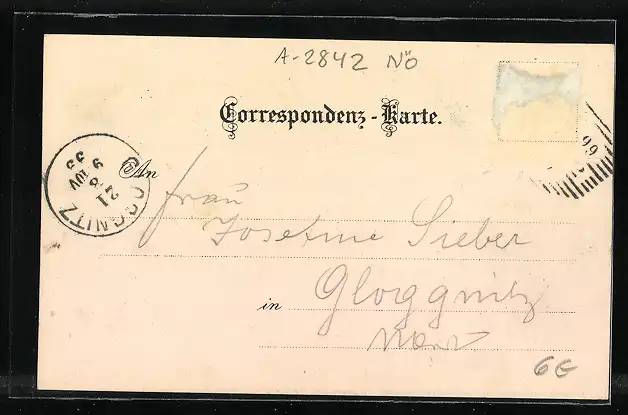 A-2842 NÖ
Correspondenz-Karte.
99
GLOGGNITZ
21
8
9 NV
99
An Frau
Josefine Sieber
in Gloggnitz
6E